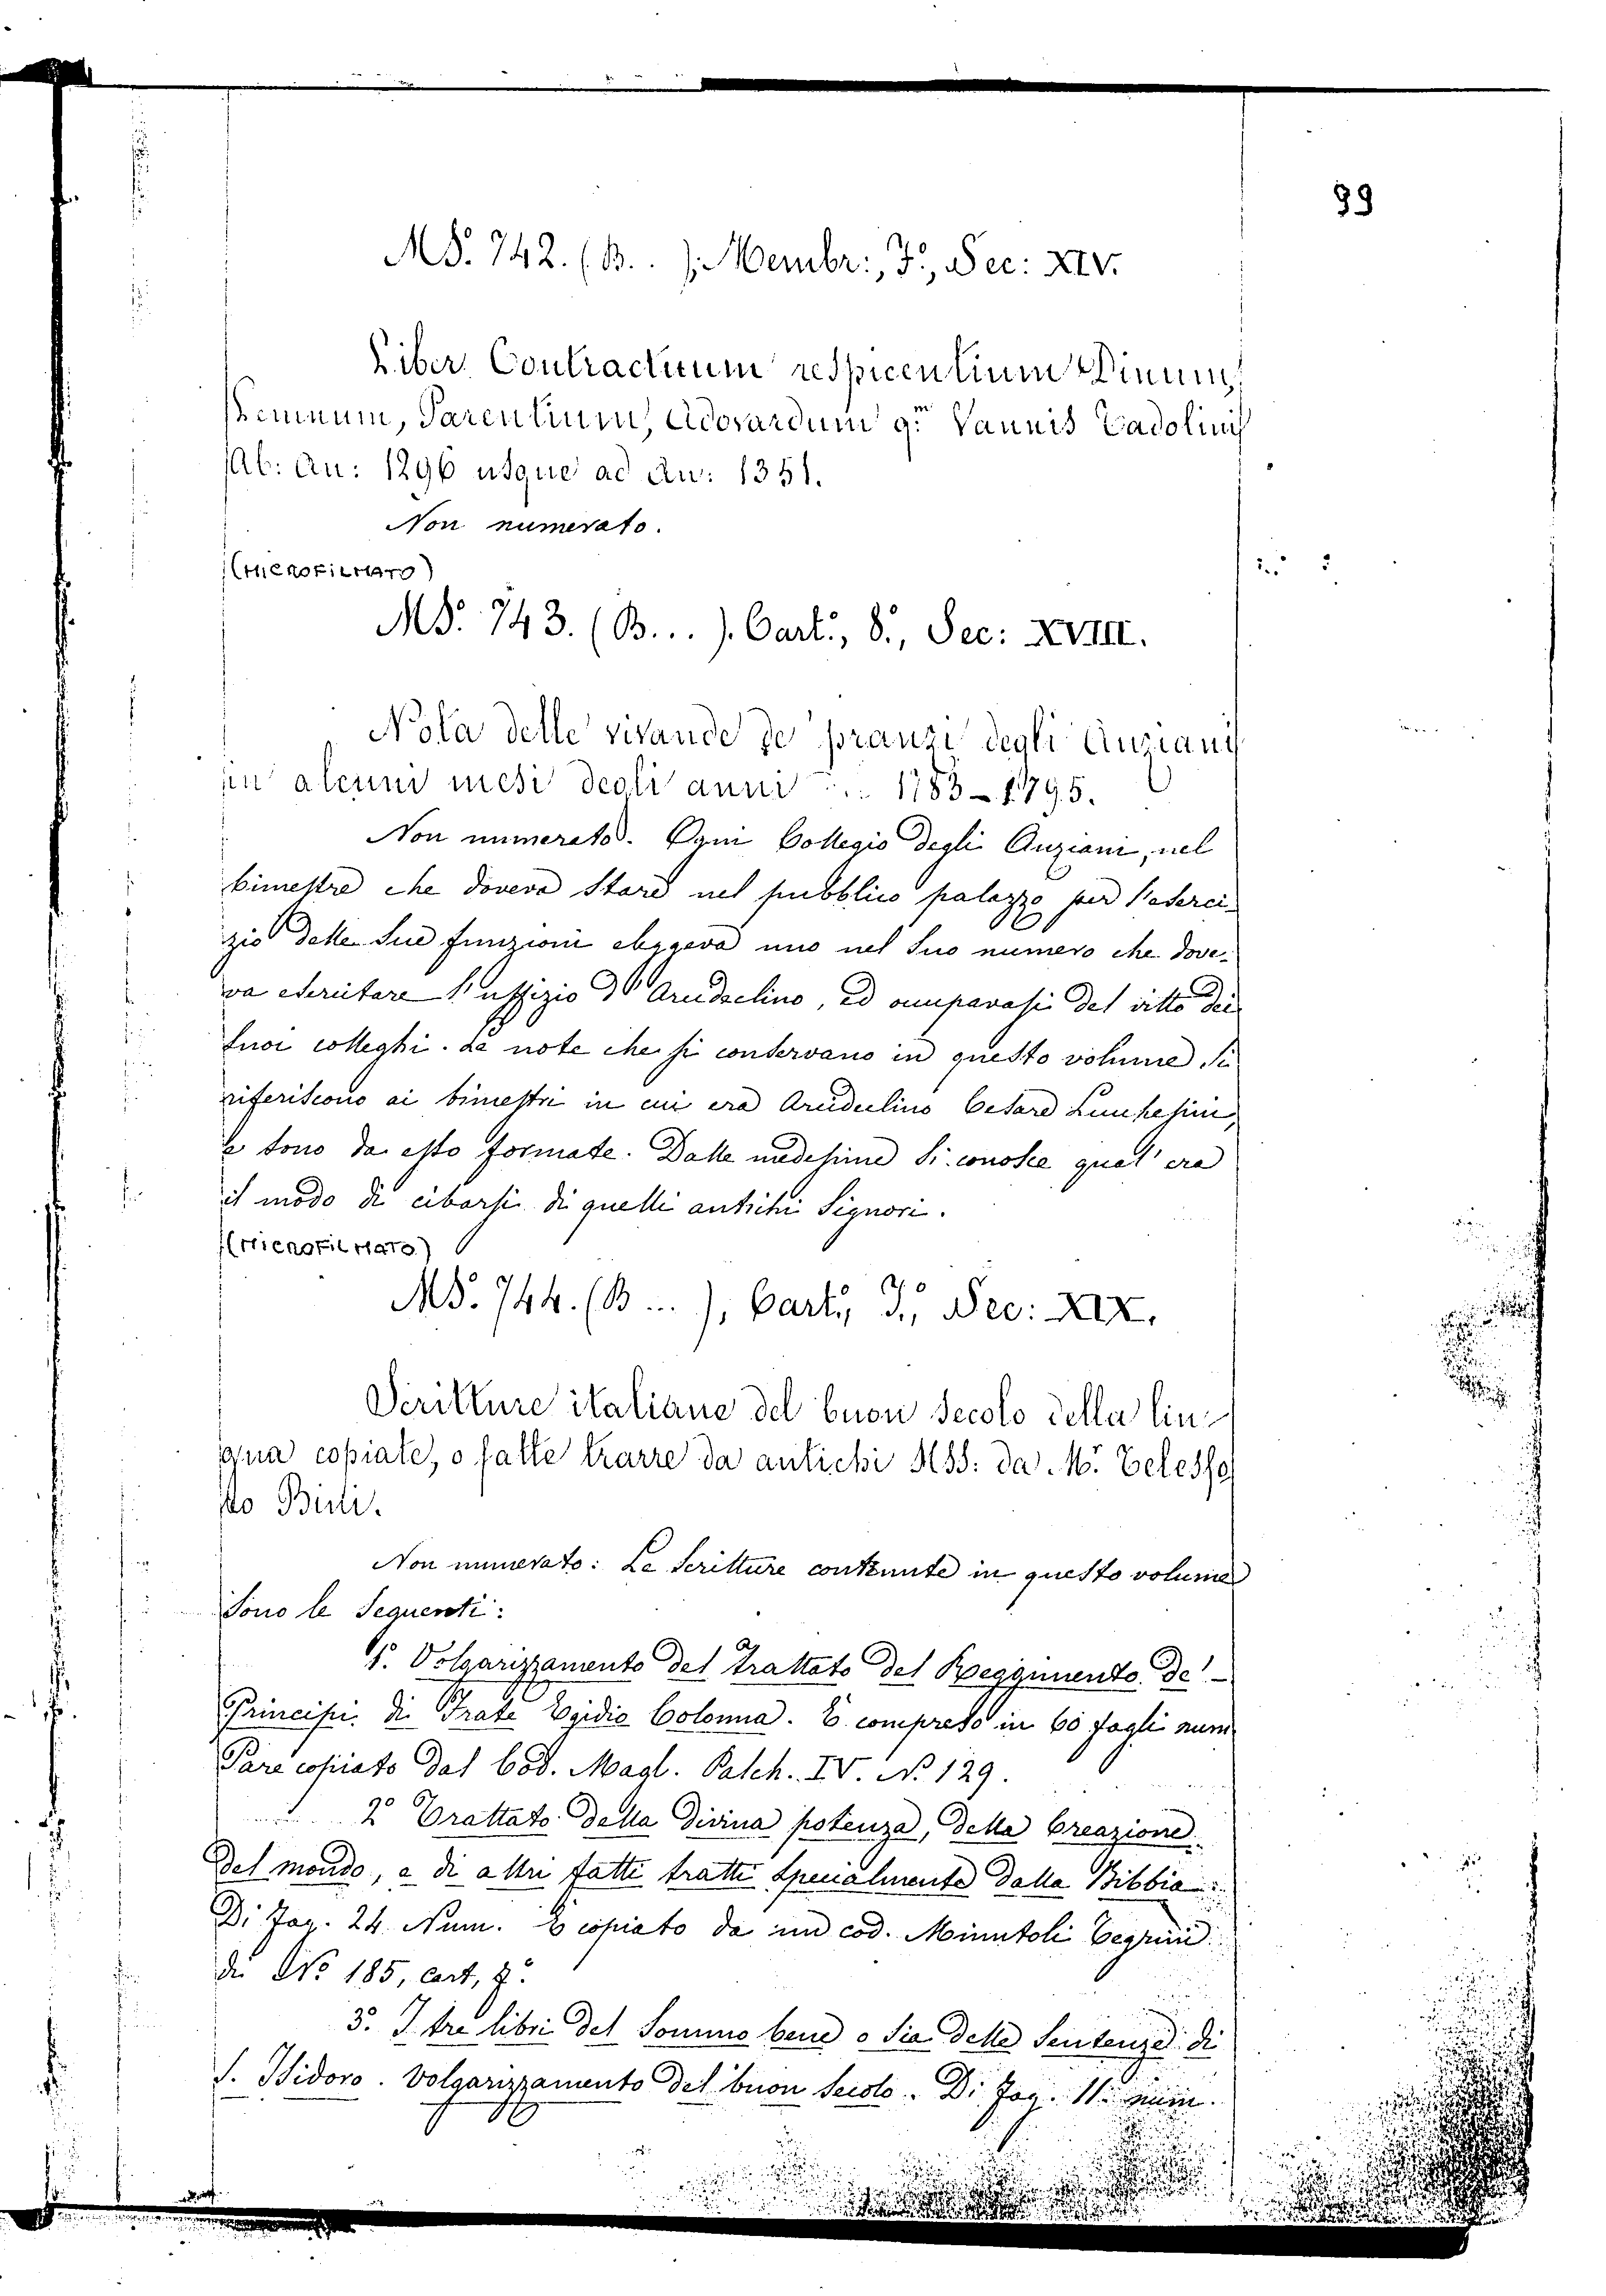 99
MS. 742. (B. . ). Membr:, F.º, Sec: XIV.
Liber Contractuum respicentium Dinum,
Nemnum, Parentium, Adovardum q.m Vannis Tadolini
Ab: An: 1296 usque ad An: 1351.
Non numerato.
(MICROFILMATO)
MS. 743. (B. . . ). Cart:, 8.º, Sec: XVIII.
Nota delle vivande de' pranzi degli Anziani
in alcuni mesi degli anni ... 1783-1795.
Non numerato. Ogni Collegio degli Anziani, nel
bimestre che doveva stare nel pubblico palazzo per l'eserci-
zio delle sue funzioni eleggeva uno nel suo numero che dove-
va esercitare l'uffizio d'Arudselino, ed occupavasi del vitto dei
suoi colleghi. Le note che si conservano in questo volume si
riferiscono ai bimestri in cui era Arudselino Cesare Lucchesini,
e sono da esso formate. Dalle medesime si conosce qual'era
il modo di cibarsi di quelli antichi Signori.
(MICROFILMATO)
MS. 744. (B ... ), Cart:, F.º, Sec: XIX.
Scritture italiane del buon secolo della lin-
gua copiate, o fatte trarre da antichi MSS: da M.r Telesfo-
ro Bini.
Non numerato: Le scritture contenute in questo volume
sono le sequenti:
1.º Volgarizzamento del trattato del Reggimento de'-
Principi di Frate Egidio Colonna. È compreso in 60 fogli num
Pare copiato dal Cod. Magl. Palch. IV. N.º 129.
2.º Trattato della divina potenza, della Creazione
del mondo, e di altri fatti tratti specialmente dalla Bibbia.
Di Fog. 24 Num. È copiato da un cod. Minutoli Tegrimi
di N.º 185, cart, 4.º
3.º I tre libri del Sommo bene o sia delle Sentenze di
S. Isidoro. Volgarizzamento del buon secolo. Di Fog. 11. num.